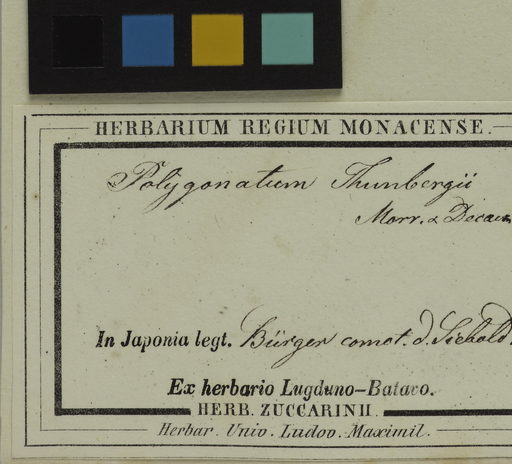 HERBARIUM REGIUM MONACENSE.
Polygonatum Thunbergii
Morr. & Decaisn
In Japonia legt. Bürger comot. d. Siebold.
Ex herbario Lugduno-Batavo.
HERB. ZUCCARINII.
Herbar. Univ. Ludov. Maximil.